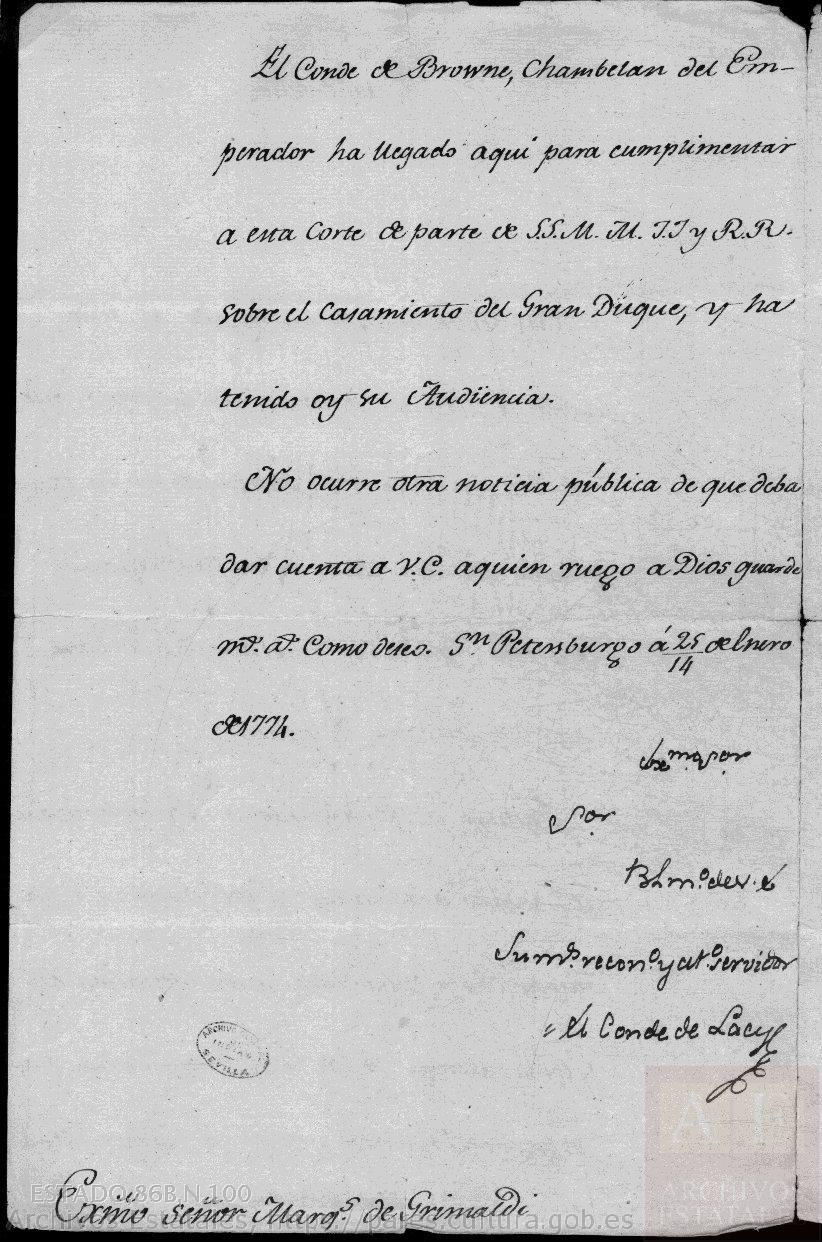 El Conde de Browne, Chambelan del Em-
perador ha llegado aquí para cumplimentar
a esta Corte de parte de S.S. M. M. I.I y R.R.
sobre el Casamiento del Gran Düque, y ha
tenido oy su Audiencia.
No ocurre otra noticia pública de que deba
dar cuenta a V.E. aquien ruego a Dios guarde
m.ˢ a.ˢ Como deseo. S.ⁿ Petersburgo á 25/14 de Enero
de 1774.
Ex.ᵐᵒ Sor
S.ᵒʳ
BLm.º de V. E
Su m.ˢ recon.º y at.º servidor
El Conde de Lacy
ARCHIVO
SEVILLA
Exm̃o Señor Marq.ˢ de Grimaldi
ESTADO,86B,N.100
Archivos Estatales, http://pares.cultura.gob.es
ARCHIVOS
ESTATALES